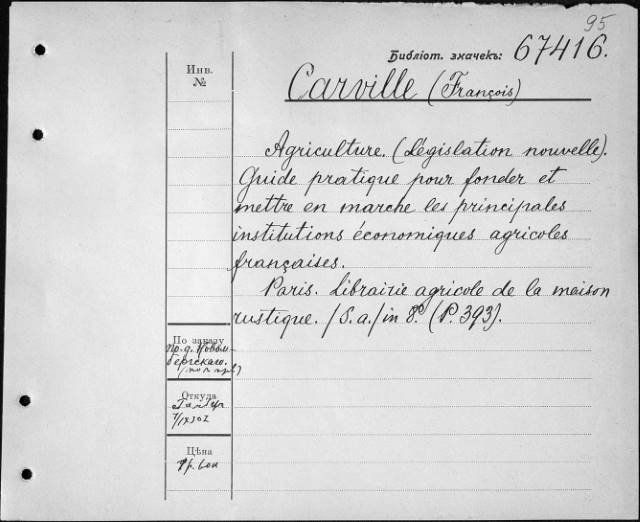 95
Библіот. значекъ: 67416.
Инв.
№
Carville (François)
Agriculture. (Législation nouvelle).
Guide pratique pour fonder et
mettre en marche les principales
institutions économiques agricoles
françaises.
Paris. Librairie agricole de la maison
rustique. /S. a./ in 8º. (P. 393).
По заказу
Откуда
Цѣна